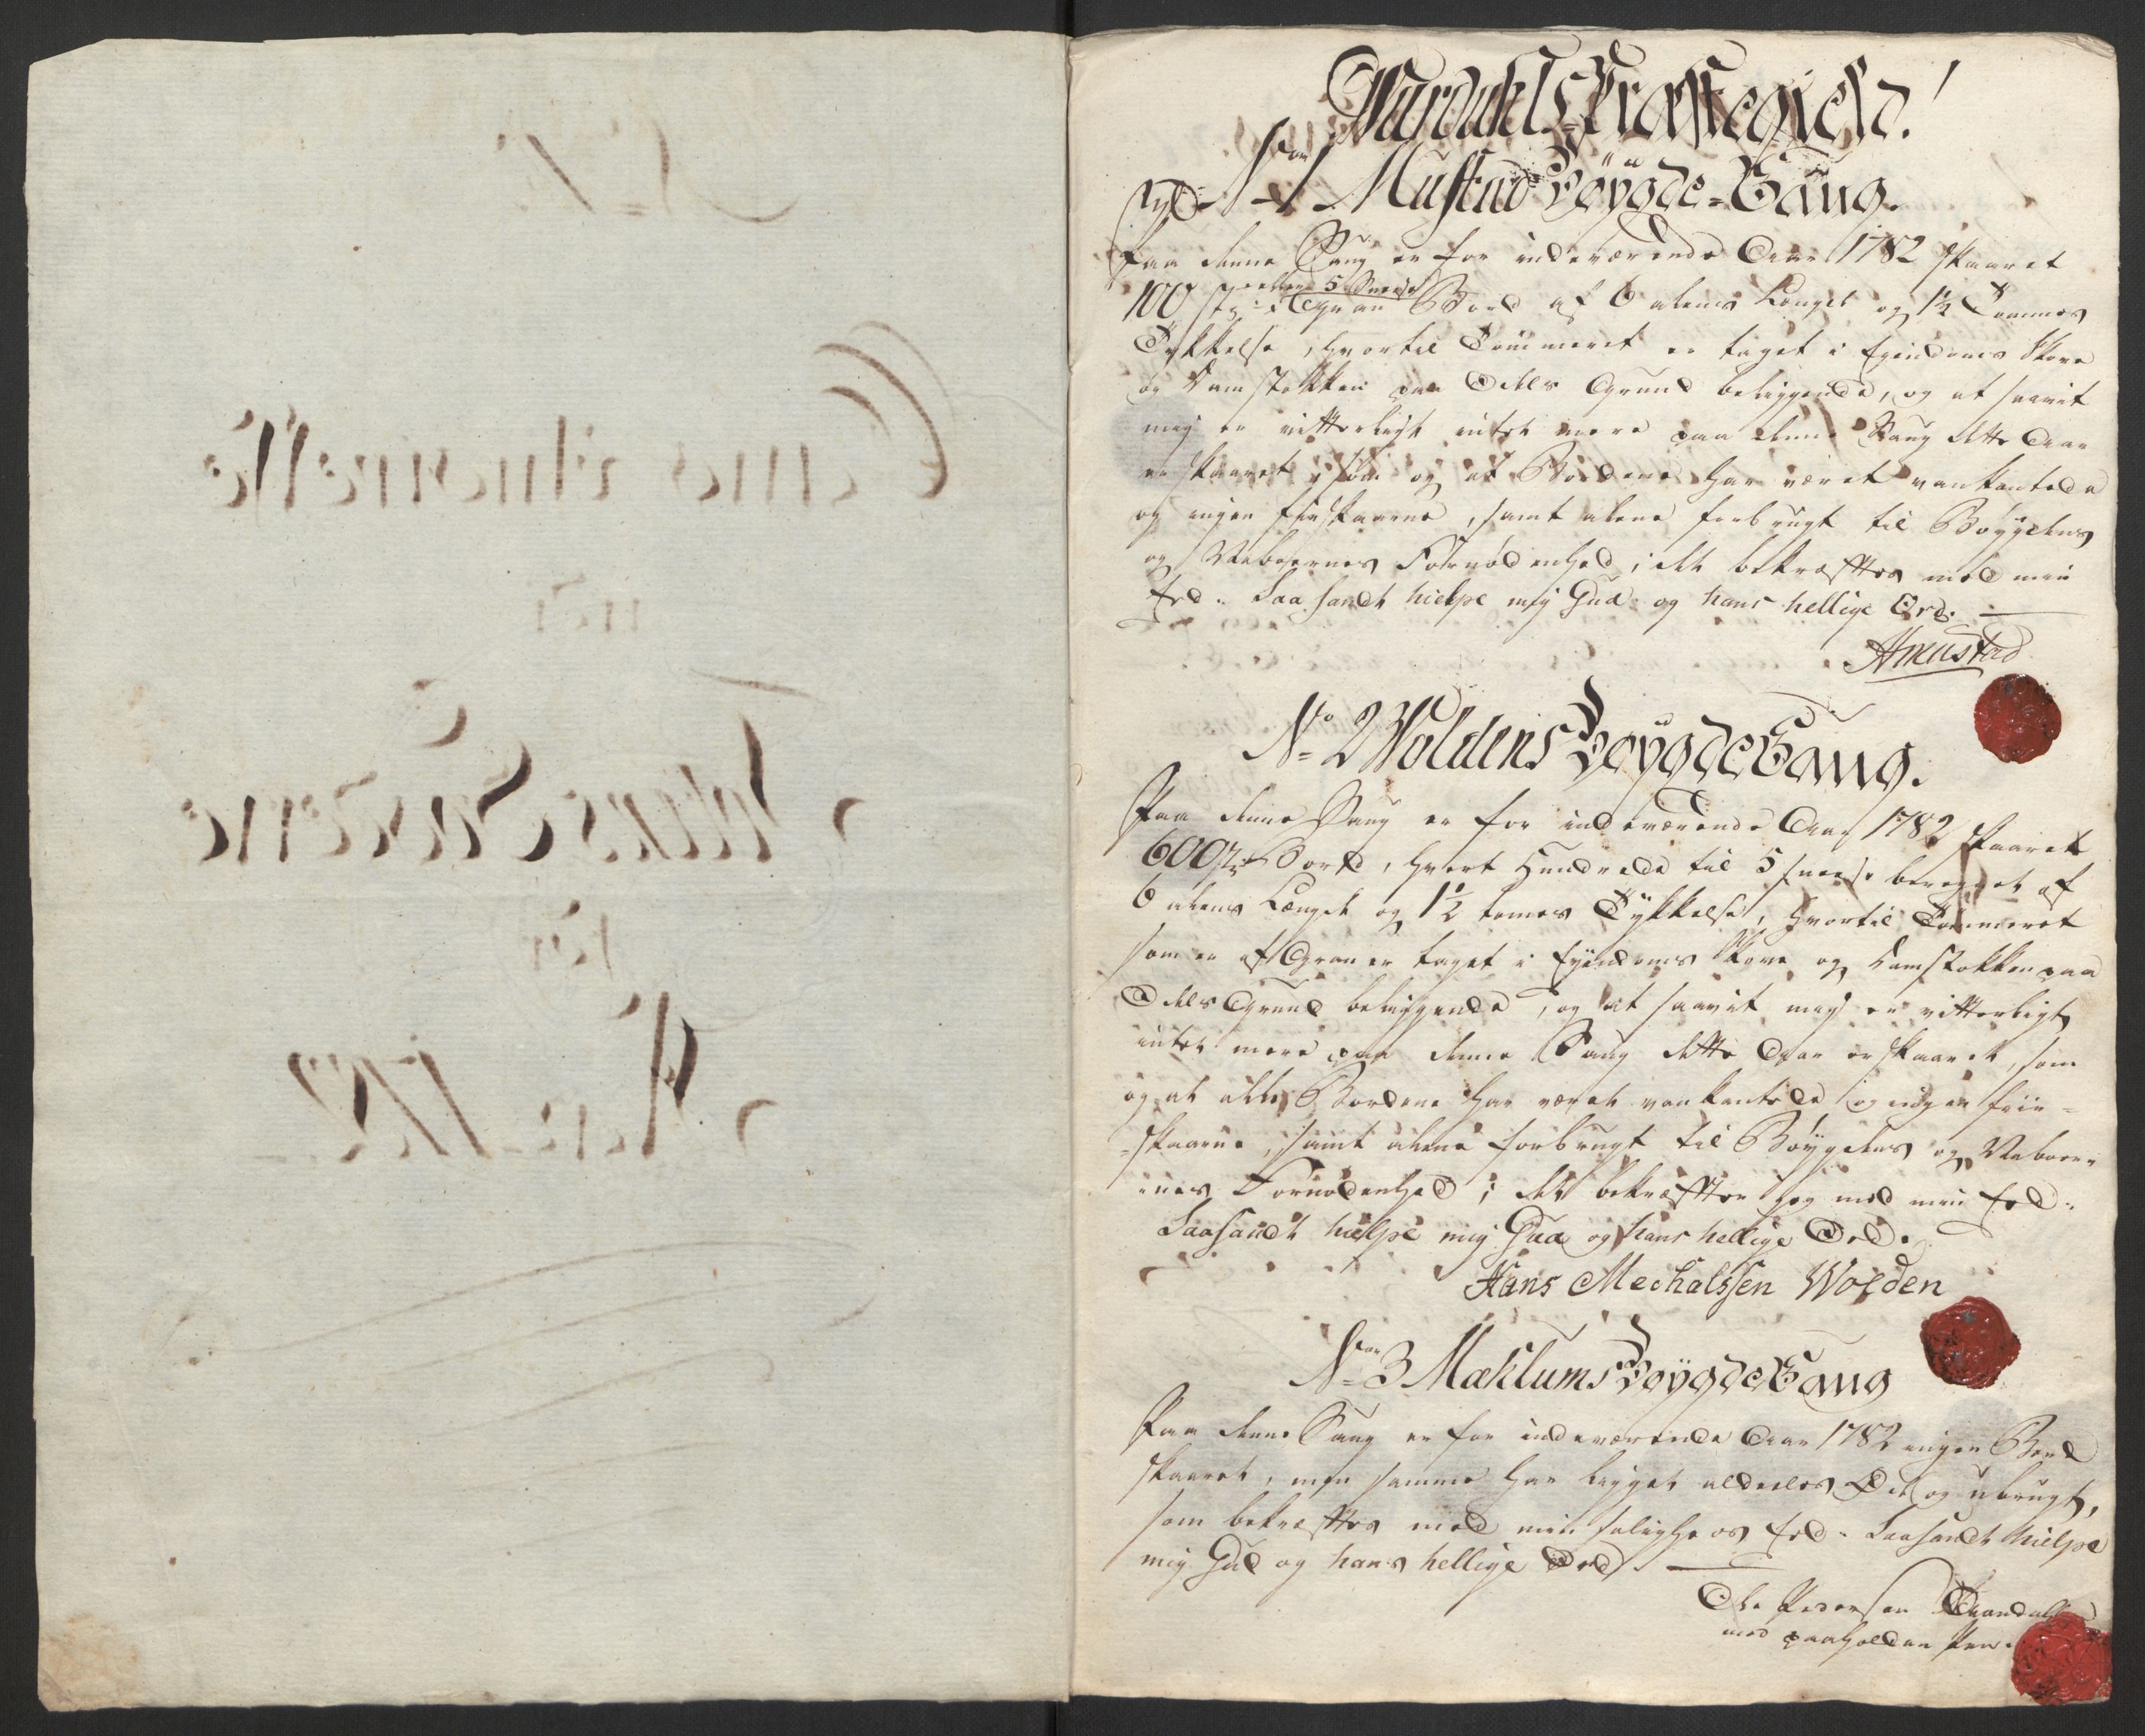 Wardahls Præstegield!
No 1 Mustad Böygde-Saug.
Paa denne Saug er for indeværende Aar 1782 skaaret
eller 5 Sneese
100 st: Gran Bord af 6 alens Længde og 1½ Tommes
Tykkelse, hvortil Tömmeret er taget i Eiendoms Skove
og Damstokken paa Odels Grund beliggende, og at saavit
mig er vitterligt intet mere paa denne Saug dette Aar
er skaaret, som og at Bordene har været vankantede
og ingen fiirskaarne, samt alene forbrugt til Böygdens
og Naboernes Fornödenhed; det bekræftes med min
Eed. Saa sandt hielpe mig Gud og hans hellige Ord.
AMustad
No 2 Woldens Böygde Saug.
Paa denne Saug er for indeværende Aar 1782 skaaret
600 st Bord, hvert Hundrede til 5 sneese beregnet af
6 alens Længde og 1½ tomes Tykkelse, hvortil Tömmeret
som er af Gran er taget i Eyendoms Skove og Damstokken paa
Odels Grund beliggende, og at saavit mig er vitterligt
intet mere paa denne Saug dette Aar er skaaret, som
og at alle Bordene har været vankantede og ingen fiir-
-skaarne, samt alene forbrugt til Böygdens og Naboer-
-nes Fornödenhed; det bekræfter jeg med min Eed.
Saa sandt hielpe mig Gud og hans hellige Ord.
Hans Mechalssen Wolden
No 3 Mæhlums Böygde Saug
Paa denne Saug er for indeværende Aar 1782 ingen Bord
skaaret, men samme har ligget aldeeles Öde og ubrugt,
som bekræftes med min saligheds Eed. Saa sandt hielpe
mig Gud og hans hellige Ord.
Ole Pedersen
med paaholden Pen.